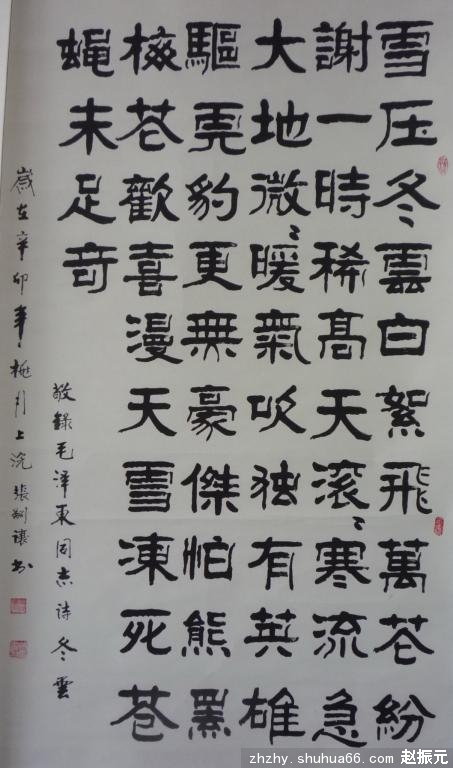 雪压冬雲白絮飛萬花紛
謝一時稀高天滚〻寒流急
大地微〻暖氣吹独有英雄
驅虎豹更無豪傑怕熊罴
梅花歡喜漫天雪凍死苍
蝇未足奇
敬錄毛泽東同志诗冬雲
歲在辛卯年桃月上浣張
zhzhy.shuhua66.com 赵振元